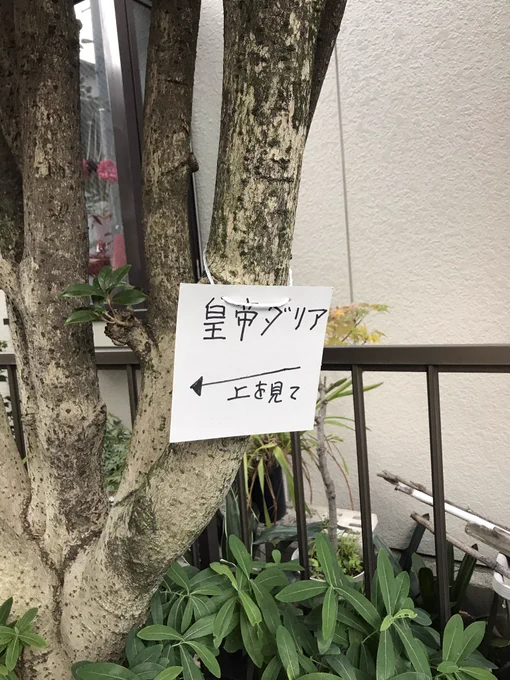 皇帝ダリア
上を見て